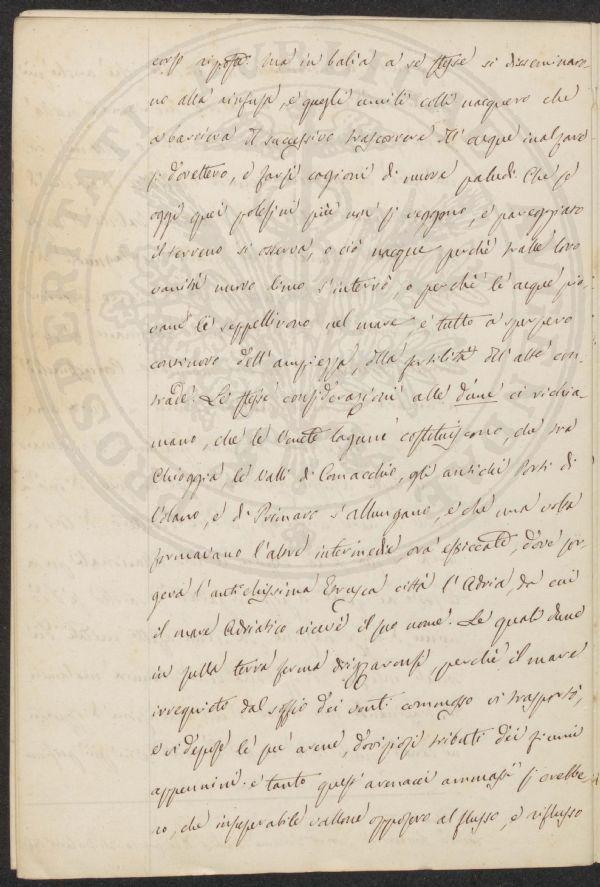 corso riposte. Ma in balia a sè stesse si disseminaro-
no alla rinfusa, e quegli umili colli nacquero che
a barriera il successivo trascorrere dell' acque inalzare
si dovettero, e farsi cagioni di nuove paludi. Che se
oggi quei polesini più non si veggono, e pareggiato
il terreno si osserva, o ciò nacque perchè tralle loro
vanità nuovo limo s'interrò, o perchè le acque pio-
vane le seppellirono nel mare e tutto a
dell' ampiezza, e fertilità dell' alte con-
trade. Le stesse considerazioni alle dune ci richia-
mano, che le Venete lagune costituiscono, che tra
Chioggia le Valli di Comacchio, gli antichi Porti di
Volano, e di Primaro s'allungano, e che una volta
formavano l'altre intermedie, ora essiccate, dove sor-
geva l'antichissima Etrusca città l'Adria, da cui
il mare Adriatico riceve il suo nome. Le quali dune
in sulla terra ferma drizzaronsi, perchè il mare
irrequieto dal soffio dei venti commosso vi trasportò,
e vi depose le sue arene, doviziosi tributi dei fiumi
appennini. e tanto questi arenacei ammassi s'
ro, che insuperabile vallone opposero al flusso, e riflusso
PROSPERITATI PUBLICAE